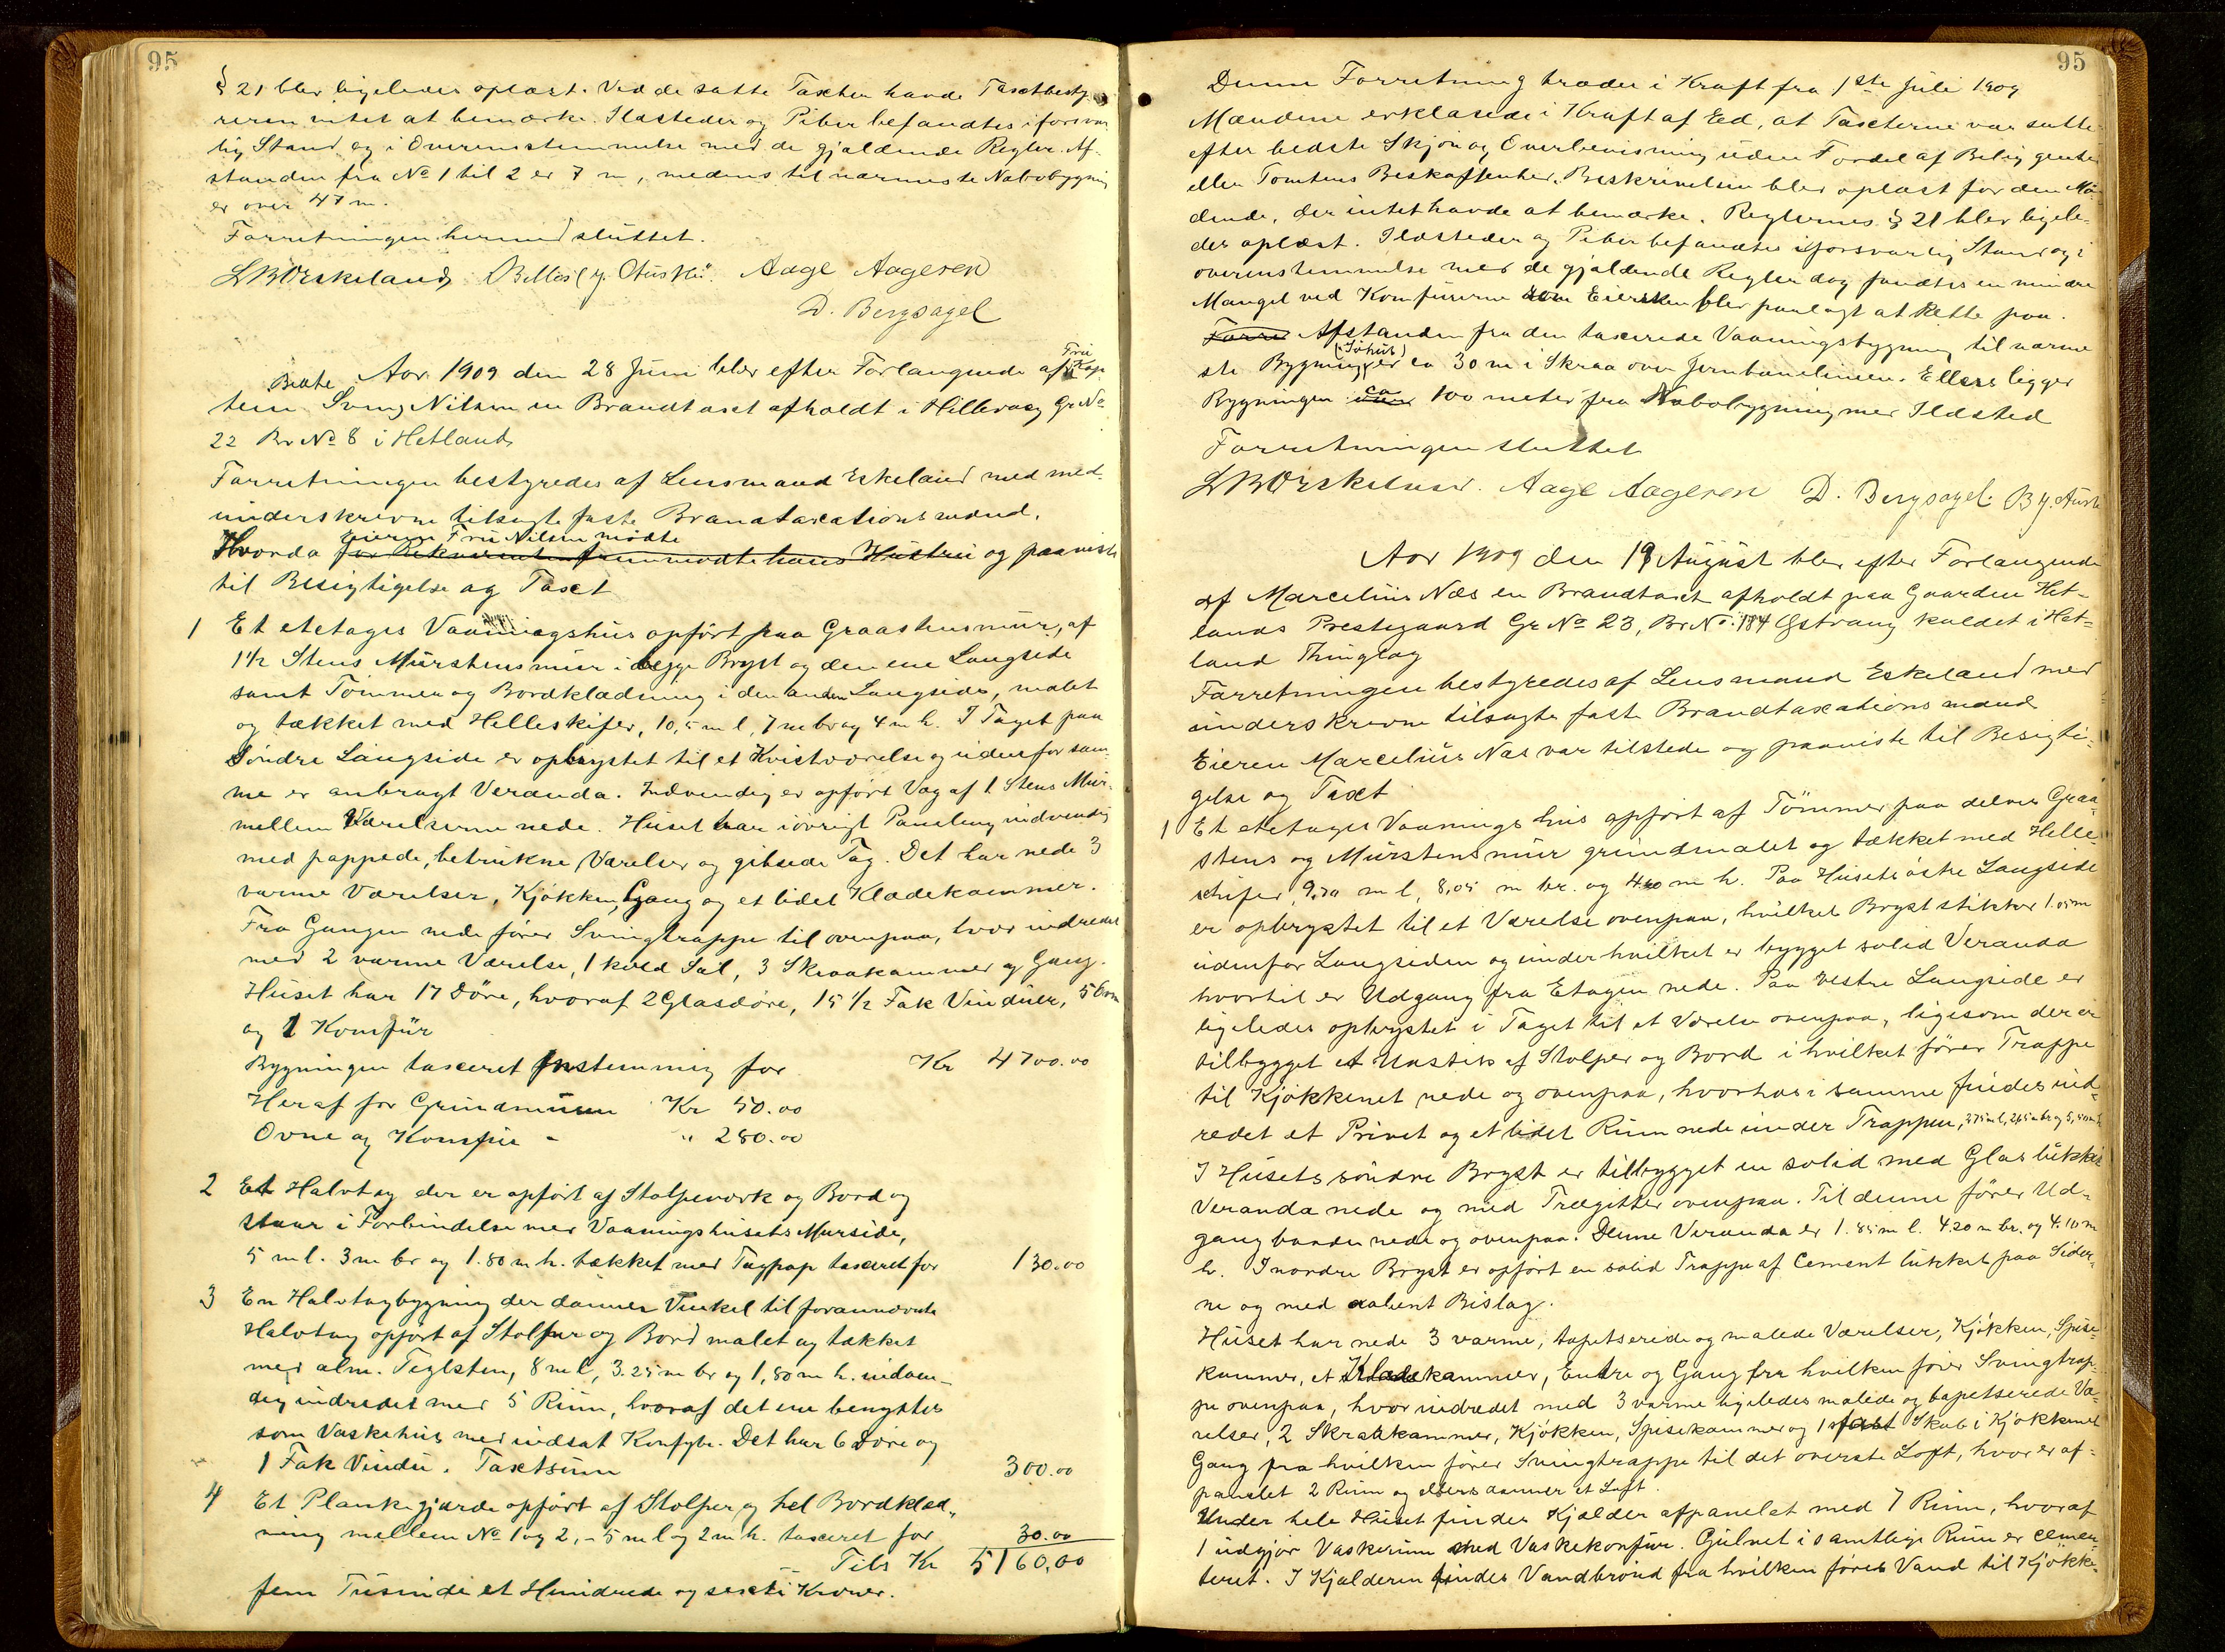 95
§ 21 blev ligeledes oplæst. Ved de satte Taxter havde Taxtbesty-
reren intet at bemærke. Ildsteder og Piber befandtes i forsvar
lig Stand og i Overensstemmelse med de gjældende Regler. Af-
standen fra No 1 til 2 er 7 m, medens til nærmeste Nabobygning
er over 47 m.
Forretningen hermed sluttet.
Aage Aageren
D. Bergsagel
Beate
Fru
Aar 1909 den 28 Juni blev efter Forlangende af Kap
tein Svenj Nilsen en Brandtaxt afholdt i Hillevaag Gr No
22 Br No 8 i Hetland
Forretningen bestyredes af Lensmand Eskeland med med-
underskrevne tilsagte faste Brandtaxationsmænd.
Eieren Fru Nilsen mødte
Hvorda for Rekvirenten fremmødte hans Hustru og paaviste
til Besigtigelse og Taxt
1 Et etetages Vaaningshus opført paa Graastensmur, af
1 1/2 Stens Murstensmur i begge Bryst og den ene Langside
samt Tømmer og Bordklædning i den anden Langside, malet
og tækket med Helleskifer, 10,5 m l, 7 m br og 4 m h. I Taget paa
Søndre Langside er opbrystet til et Kvistværelse og udenfor sam-
me er anbragt Veranda. Indvendig er opført Væg af 1 Stens Mur
mellem Værelserne nede. Huset har iøvrigt Paneling indvendig
med pappede, betrukne Værelser og gibsede Tag. Det har nede 3
varme Værelser, Kjøkken, Gang og et lidet Klædekammer.
Fra Gangen nede fører Svingtrappe til ovenpaa, hvor indredet
med 2 varme Værelse, 1 kold Sal, 3 Skraakammer og Gang.
Huset har 17 Døre, hvoraf 2 Glasdøre, 15 1/2 Fak Vinduer, 5 Ovne
og 1 Komfür
Bygningen taxeret Enstemmig for Kr 4700.00
Heraf for Grundmuren Kr 50.00
Ovne og Komfür - " 280.00
2 Et Halvtag der er opført af Stolpeværk og Bord og
staar i Forbindelse med Vaaningshusets Murside,
5 m l. 3 m br og 1.80 m h. tækket med Tagpap taxeret for 130.00
3 En Halvtagbygning der danner Vinkel til forannævnte
Halvtag opført af Stolper og Bord malet og tækket
med alm. Teglsten, 8 m l, 3.25 m br og 1,80 m h. indven-
dig indredet med 5 Rum, hvoraf det ene benyttes
som Vaskehus med indsat Konfyr. Det har 6 Døre og
1 Fak Vindu. Taxtsum 300.00
4 Et Plankegjærde opført af Stolper og hel Bordklæd-
ning mellem No 1 og 2, - 5 m l og 2 m h. taxeret for 30.00
Tils Kr 5160,00
fem Tusinde et Hundrede og sexti Kroner.
95
Denne Forretning træder i Kraft fra 1ste Juli 1909
Mændene erklærede i Kraft af Ed, at Taxterne var satte
efter bedste Skjøn og Overbevisning uden Fordel af Beliggenhed
eller Tomtens Beskaffenhed. Beskrivelsen blev oplæst for den Mø-
dende, der intet havde at bemærke. Reglernes § 21 blev ligele-
des oplæst. Ildsteder og Piber befandtes i forsvarlig Stand og i
overensstemmelse med de gjældende Regler dog fandtes en mindre
Mangel ved Komfurerne som Eiersken blev paalagt at Rette paa.
Forre Afstanden fra den taxerede Vaaningsbygning til nærme
(Søhus)
ste Bygning er ca 30 m i Skraa over Jernbanelinien. Ellers ligger
Bygningen ca 100 meter fra Nabobygning med Ildsted
Forretningen sluttet
Aage Aageren D. Bergsagel.
Aar 1909 den 19 August blev efter Forlangende
af Marcelius Næs en Brandtaxt afholdt paa Gaarden Het-
lands Prestegaard Gr No 23, Br No. 184 kaldet i Het-
land Thinglag
Forretningen bestyredes af Lensmand Eskeland med
underskrevne tilsagte faste Brandtaxationsmænd
Eieren Marcelius Næs var tilstede og paaviste til Besigti-
gelse og Taxt
1 Et etetages Vaaningshus opført af Tømmer paa delvis Graa-
stens og Murstensmur grundmalet og tækket med Helle-
schifer 9.70 m l, 8,05 m br. og 4.20 m h. Paa Husets østre Langside
er opbrystet til et Værelse ovenpaa, hvilket Bryst stikker 1.05 m
udenfor Langsiden og under hvilket er bygget solid Veranda
hvortil er Udgang fra Etagen nede. Paa vestre Langside er
ligeledes opbrystet i Taget til et Værelse ovenpaa, ligesom der er
tilbygget et Udstik af Stolper og Bord i hvilket fører Trappe
til Kjøkkenet nede og ovenpaa, hvorhos i samme findes ind-
redet et Privet og et lidet Rum nede under Trappen,
I Husets søndre Bryst er tilbygget en solid med Glas lukket
Veranda nede og med Trægitter ovenpaa. Til denne fører Ud-
gang baade nede og ovenpaa. Denne Veranda er 1.85 m l. 4.20 m br. og 4.10 m
h. I nordre Bryst er opført en solid Trappe af Cement lukket paa Sider-
ne og med aabent Bislag.
Huset har nede 3 varme, tapetserede og malede Værelser, Kjøkken, Spise-
kammer, et Klædekammer, Entre og Gang fra hvilken fører Svingtrap-
pe ovenpaa, hvor indredet med 3 varme ligeledes malede og tapetserede Væ-
relser, 2 Skraakammer, Kjøkken, Spisekammer og 1 fast Skab i Kjøkkenet
Gang fra hvilken fører Svingtrappe til det øverste Loft, hvor er af-
panelet 2 Rum og ellers danner et Loft.
Under hele Huset findes Kjælder afpanelet med 7 Rum, hvoraf
1 udgjør Vaskerum med Vaskekonfur. Gulvet i samtlige Rum er cemen-
teret. I Kjælderen findes Vandbrønd fra hvilken føres Vand til Kjøkke-